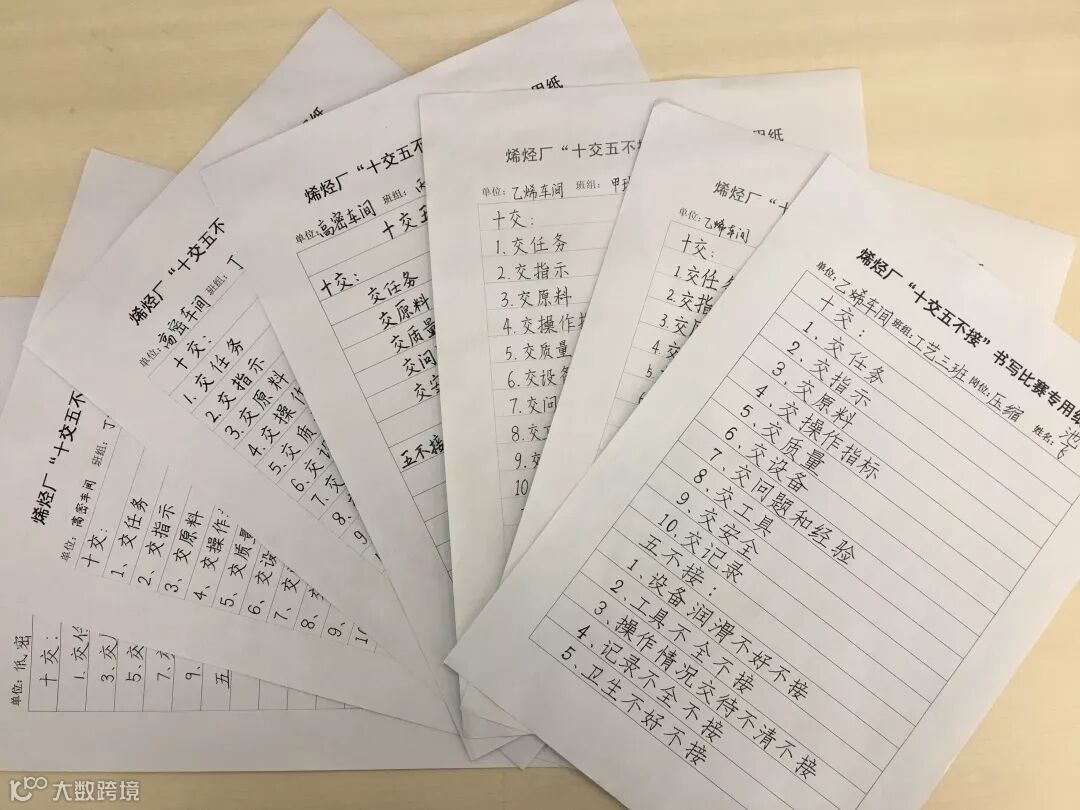 单位:低密
十交:
1.交任
3.交
5.交
7.
9.
五
烯烃厂“十交五不
单位:高密车间 班组:丁
十交:
1、交任务
2、交指示
3、交原料
4、交操作
5、交质量
6、交设
7、交
8、
9、
10
烯烃厂“十交五不
单位:高密车间 班组:丁
十交:
1.交任务
2.交指示
3.交原料
4.交操作
5.交质
6.交设
7.交
8.
9
用纸
烯烃厂“十交五不接
单位:高密车间 班组:丙
十交五
十交:
交任务
交原料
交质量
交问
交安
五不接
烯烃厂“十交五不接
单位:乙烯车间 班组:甲班
十交:
1.交任务
2.交指示
3.交原料
4.交操作指
5.交质量
6.交设备
7.交问
8.交
9.交
10
用纸
烯烃厂“十交
单位:乙烯车间
十交:
1.交任务
2.交指
3.交原
4.交
5.
6.
烯烃厂“十交五不接”书写比赛专用纸
单位:乙烯车间 班组:工艺三班 岗位:压缩 姓名:池
十交:
1、交任务
2、交指示
3、交原料
4、交操作指标
5、交质量
6、交设备
7、交问题和经验
8、交工具
9、交安全
10、交记录
五不接:
1、设备润滑不好不接
2、工具不全不接
3、操作情况交待不清不接
4、记录不全不接
5、卫生不好不接
大数跨境